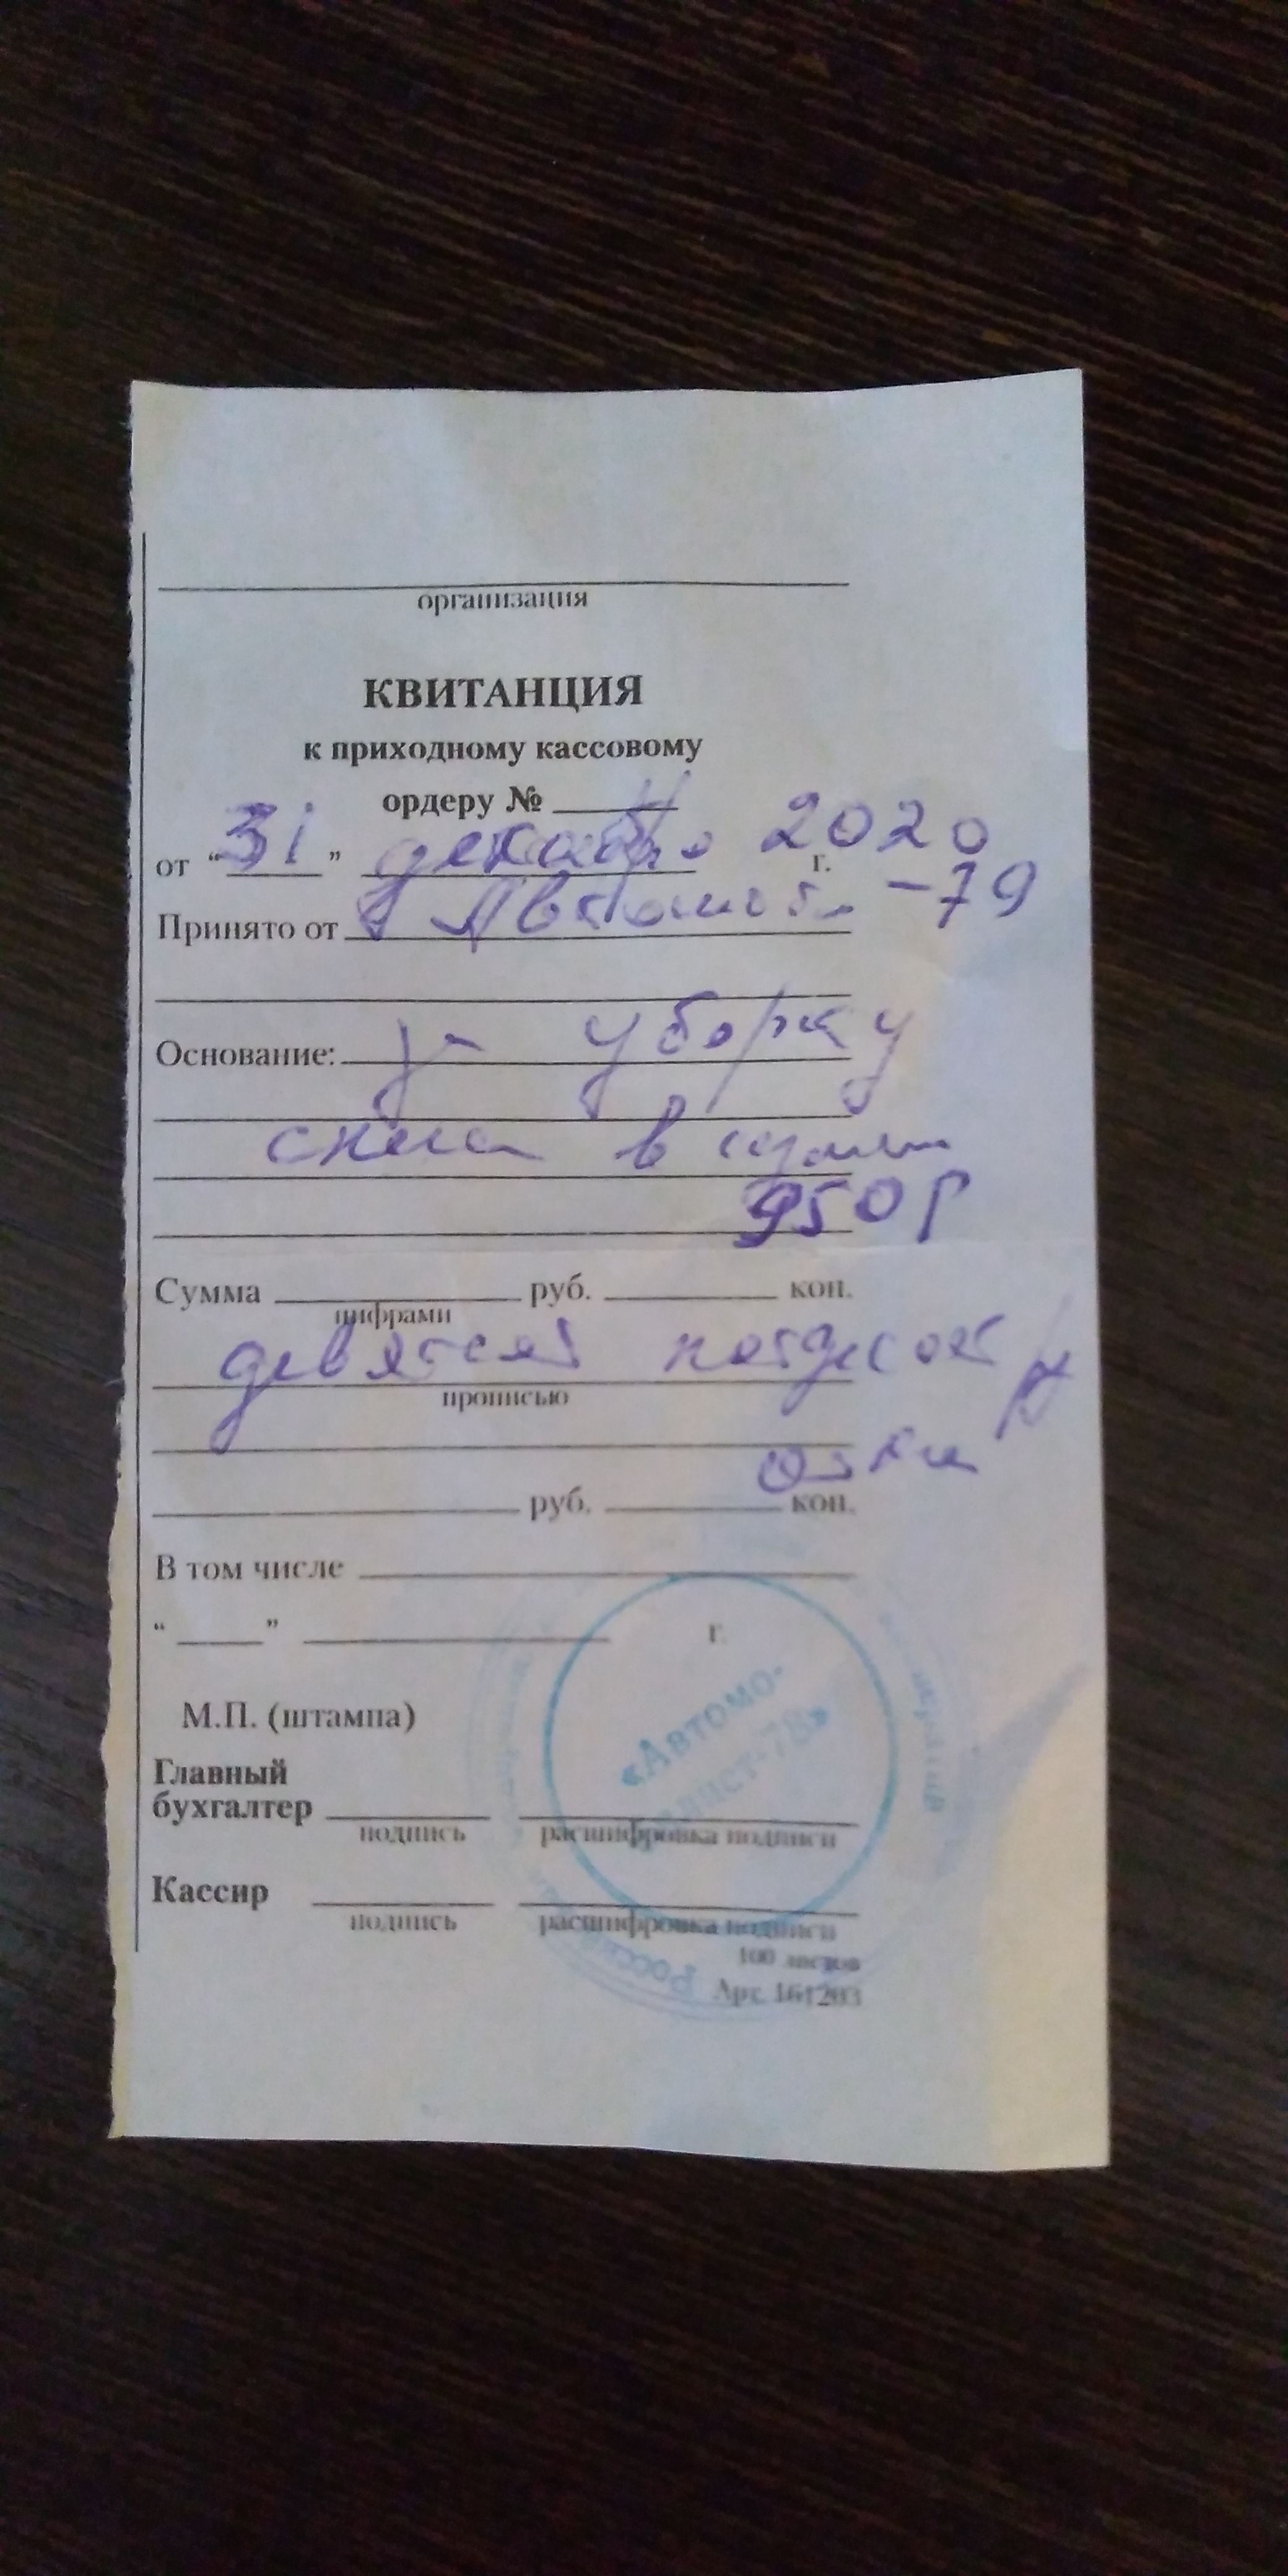 организация
КВИТАНЦИЯ
к приходному кассовому
ордеру №
от “31” декабря 2020 г.
Принято от -79
Основание: за уборку
снега в
950 р
Сумма руб. коп.
цифрами
девятсот пятдесят р
прописью
руб. коп.
В том числе
“ ” г.
М.П. (штампа)
«Автомо-
билист-78»
Главный
бухгалтер
подпись расшифровка подписи
Кассир
подпись расшифровка подписи
100 листов
Арт. 161203